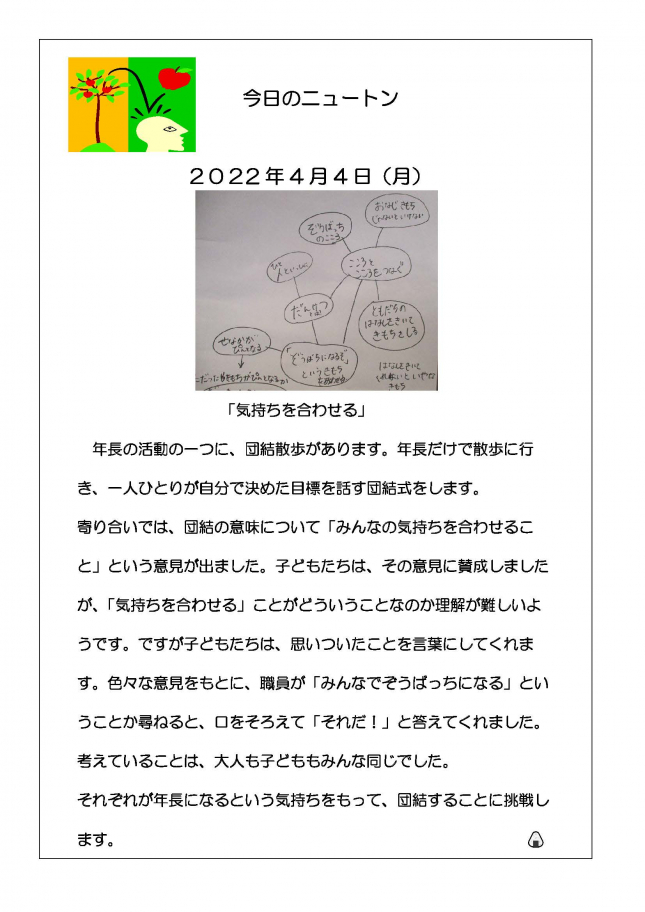 今日のニュートン
２０２２年４月４日（月）
おなじきもち
じゃないといけない
ぞうばっち
のこころ
こころと
こころをつなぐ
だんけつ
ともだちの
はなしをきいて
きもちをしる
せなかが
ぴんとなる
「ぞうばちになるぞ」
というきもち
はなしをきいて
「気持ちを合わせる」
年長の活動の一つに、団結散歩があります。年長だけで散歩に行
き、一人ひとりが自分で決めた目標を話す団結式をします。
寄り合いでは、団結の意味について「みんなの気持ちを合わせるこ
と」という意見が出ました。子どもたちは、その意見に賛成しました
が、「気持ちを合わせる」ことがどういうことなのか理解が難しいよ
うです。ですが子どもたちは、思いついたことを言葉にしてくれま
す。色々な意見をもとに、職員が「みんなでぞうばっちになる」とい
うことか尋ねると、口をそろえて「それだ！」と答えてくれました。
考えていることは、大人も子どももみんな同じでした。
それぞれが年長になるという気持ちをもって、団結することに挑戦し
ます。